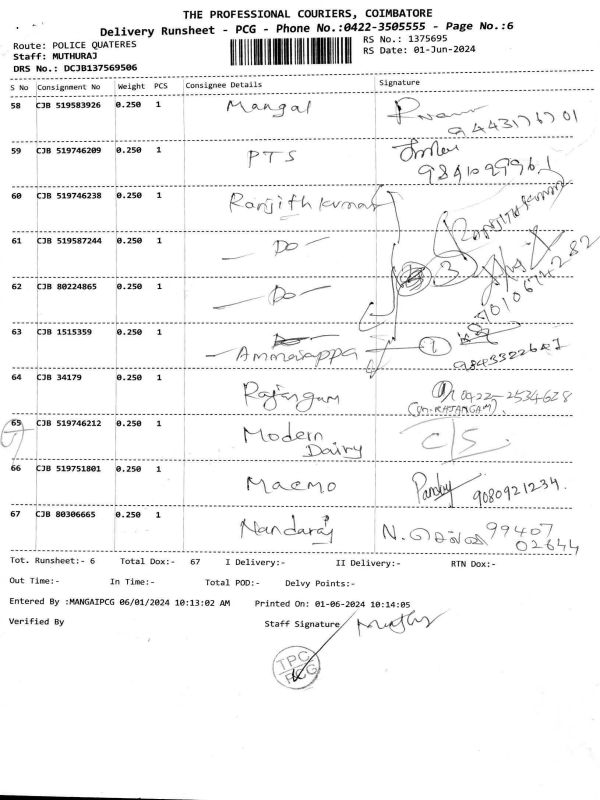 THE PROFESSIONAL COURIERS, COIMBATORE
Delivery Runsheet - PCG - Phone No.:0422-3505555 - Page No.:6
Route: POLICE QUATERES
RS No.: 1375695
Staff: MUTHURAJ
RS Date: 01-Jun-2024
DRS No.: DCJB137569506
S No Consignment No Weight PCS Consignee Details Signature
58 CJB 519583926 0.250 1 Mangal
59 CJB 519746209 0.250 1 PTS
9841099961
60 CJB 519746238 0.250 1 Ranjith kumar RANJITH KUMAR
61 CJB 519587244 0.250 1 - Do -
3
62 CJB 80224865 0.250 1 - Do -
7010674282
63 CJB 1515359 0.250 1 - Do -
- Ammasappa 1
64 CJB 34179 0.250 1 Rajangam 0422-2534628
(SM. RAJANGAM).
65 CJB 519746212 0.250 1 Modern Dairy C/S
66 CJB 519751801 0.250 1 Macmo Pandy 9080921234.
67 CJB 80306665 0.250 1 Nandaraj N. 99407
02644
Tot. Runsheet:- 6 Total Dox:- 67 I Delivery:- II Delivery:- RTN Dox:-
Out Time:- In Time:- Total POD:- Delvy Points:-
Entered By :MANGAIPCG 06/01/2024 10:13:02 AM Printed On: 01-06-2024 10:14:05
Verified By Staff Signature
TPC
PCG